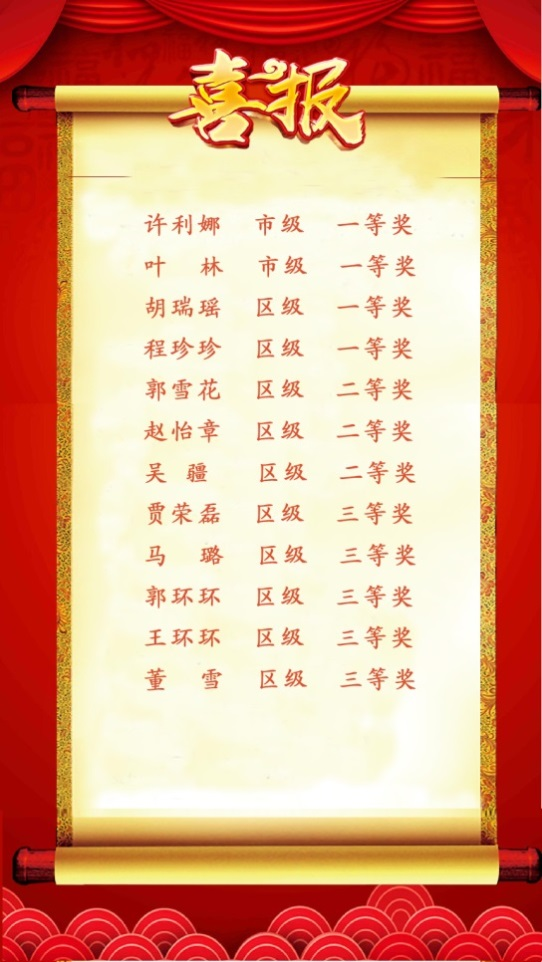 喜报
许利娜 市级 一等奖
叶 林 市级 一等奖
胡瑞瑶 区级 一等奖
程珍珍 区级 一等奖
郭雪花 区级 二等奖
赵怡章 区级 二等奖
吴 疆 区级 二等奖
贾荣磊 区级 三等奖
马 璐 区级 三等奖
郭环环 区级 三等奖
王环环 区级 三等奖
董 雪 区级 三等奖